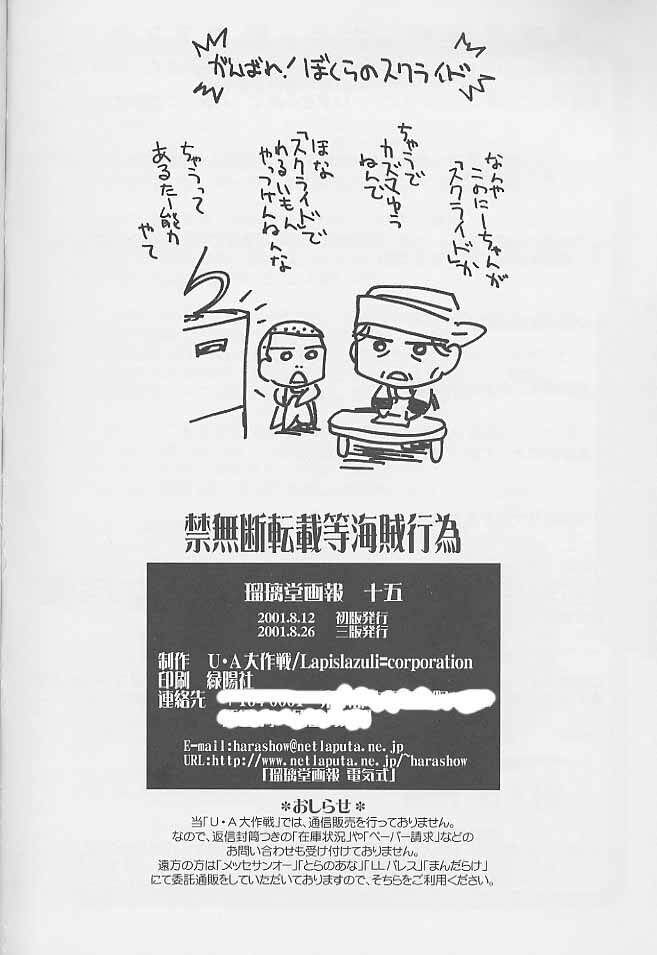 がんばれ!ぼくらのスクライド
なんや
このにーちゃんが
「スクライド」か
ちゃうで
カズマゆう
ねんで
ほな
「スクライド」で
わるいもん
やっつけんねんな
ちゃうって
あるたー能力
やて
禁無断転載等海賊行為
瑠璃堂画報 十五
2001.8.12 初版発行
2001.8.26 三版発行
制作 U・A大作戦/Lapislazuli=corporation
印刷 緑陽社
連絡先
E-mail:harashow@netlaputa.ne.jp
URL:http://www.netlaputa.ne.jp/~harashow
「瑠璃堂画報 電気式」
*おしらせ*
当「U・A大作戦」では、通信販売を行っておりません。
なので、返信封筒つきの「在庫状況」や「ペーパー請求」などの
お問い合わせも受け付けておりません。
遠方の方は「メッセサンオー」「とらのあな」「LLパレス」「まんだらけ」
にて委託通販をしていただいておりますので、そちらをご利用ください。